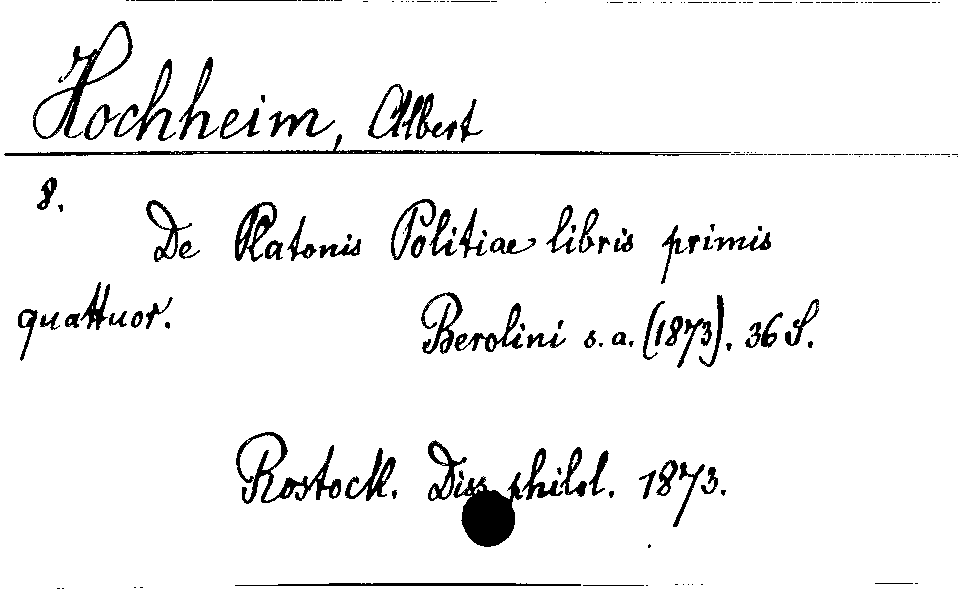 Hochheim, Albert
8.
De Platonis Politiae libris primis
quattuor. Berolini s. a. (1873). 36 S.
Rostock. Diss. philol. 1873.